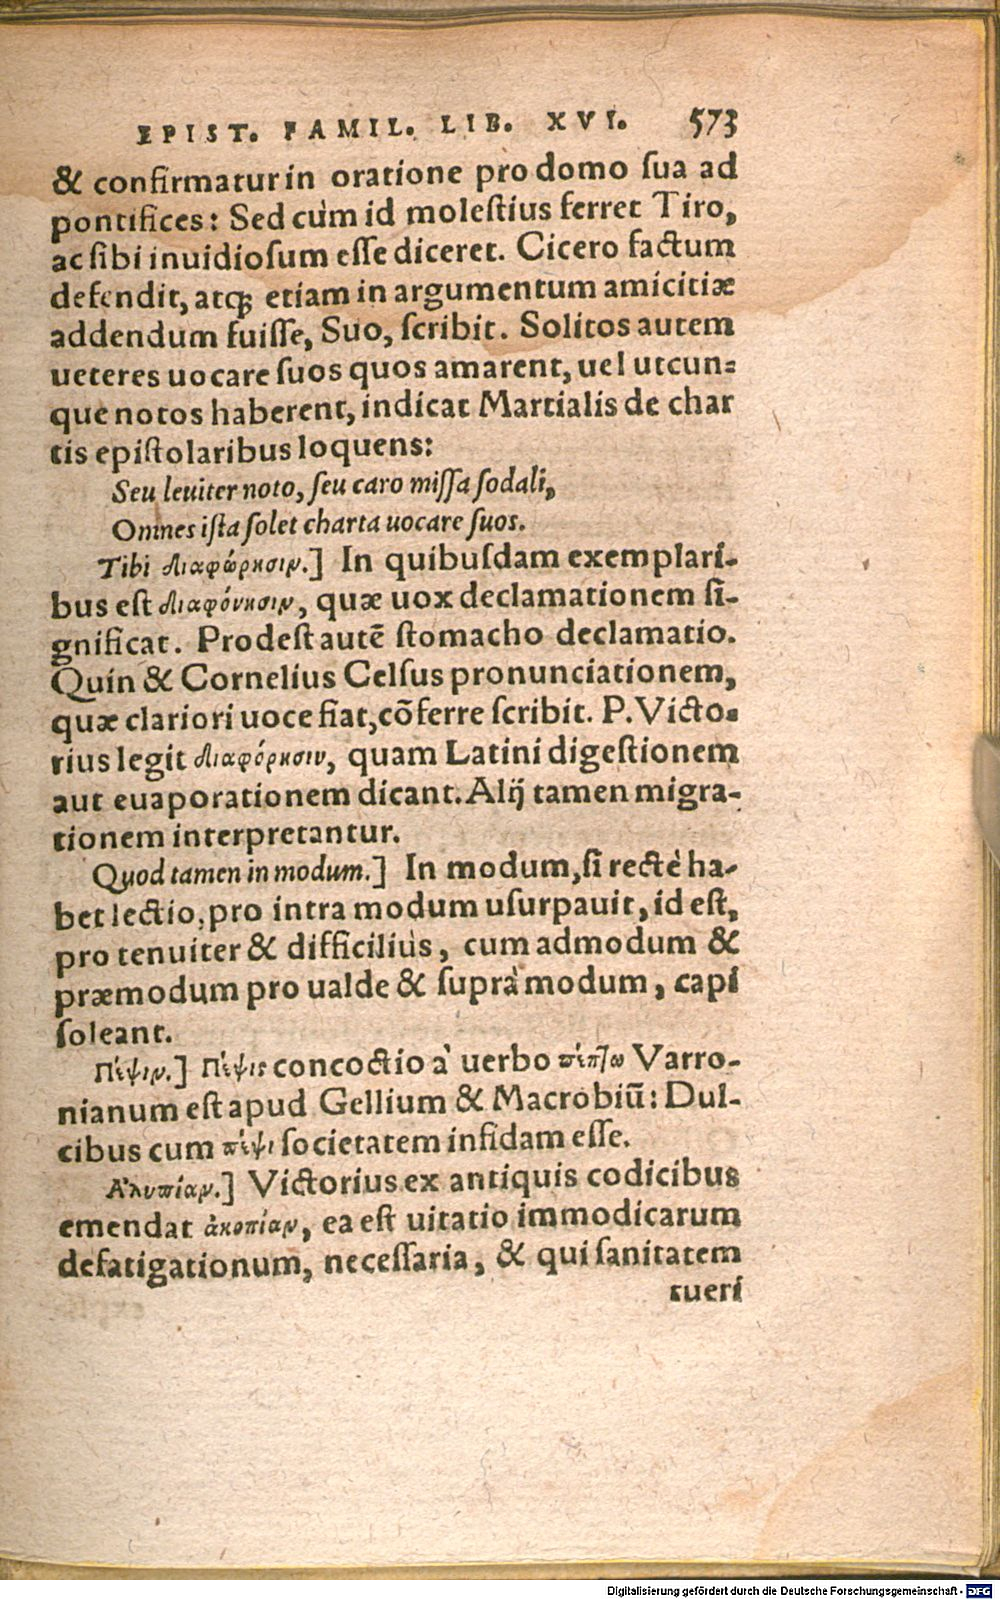 EPIST. FAMIL. LIB. XVI. 573
& confirmatur in oratione pro domo sua ad
pontifices: Sed cùm id molestius ferret Tiro,
ac sibi inuidiosum esse diceret. Cicero factum
defendit, atq; etiam in argumentum amicitiæ
addendum fuisse, Suo, scribit. Solitos autem
ueteres uocare suos quos amarent, uel utcun=
que notos haberent, indicat Martialis de char
tis epistolaribus loquens:
Seu leuiter noto, seu caro missa sodali,
Omnes ista solet charta uocare suos.
Tibi διαφώρησιν.] In quibusdam exemplari-
bus est διαφώνησιν, quæ uox declamationem si-
gnificat. Prodest autē stomacho declamatio.
Quin & Cornelius Celsus pronunciationem,
quæ clariori uoce fiat, cōferre scribit. P. Victo-
rius legit διαφόρησιν, quam Latini digestionem
aut euaporationem dicant. Alij tamen migra-
tionem interpretantur.
Quod tamen in modum.] In modum, si rectè ha-
bet lectio, pro intra modum usurpauit, id est,
pro tenuiter & difficiliùs, cum admodum &
præmodum pro ualde & suprà modum, capi
soleant.
Πέψιν.] Πέψις concoctio à uerbo πέπτω Varro-
nianum est apud Gellium & Macrobiū: Dul-
cibus cum πέψι societatem infidam esse.
Ἀλυπίαν.] Victorius ex antiquis codicibus
emendat ἀκοπίαν, ea est uitatio immodicarum
defatigationum, necessaria, & qui sanitatem
tueri
Digitalisierung gefördert durch die Deutsche Forschungsgemeinschaft - DFG